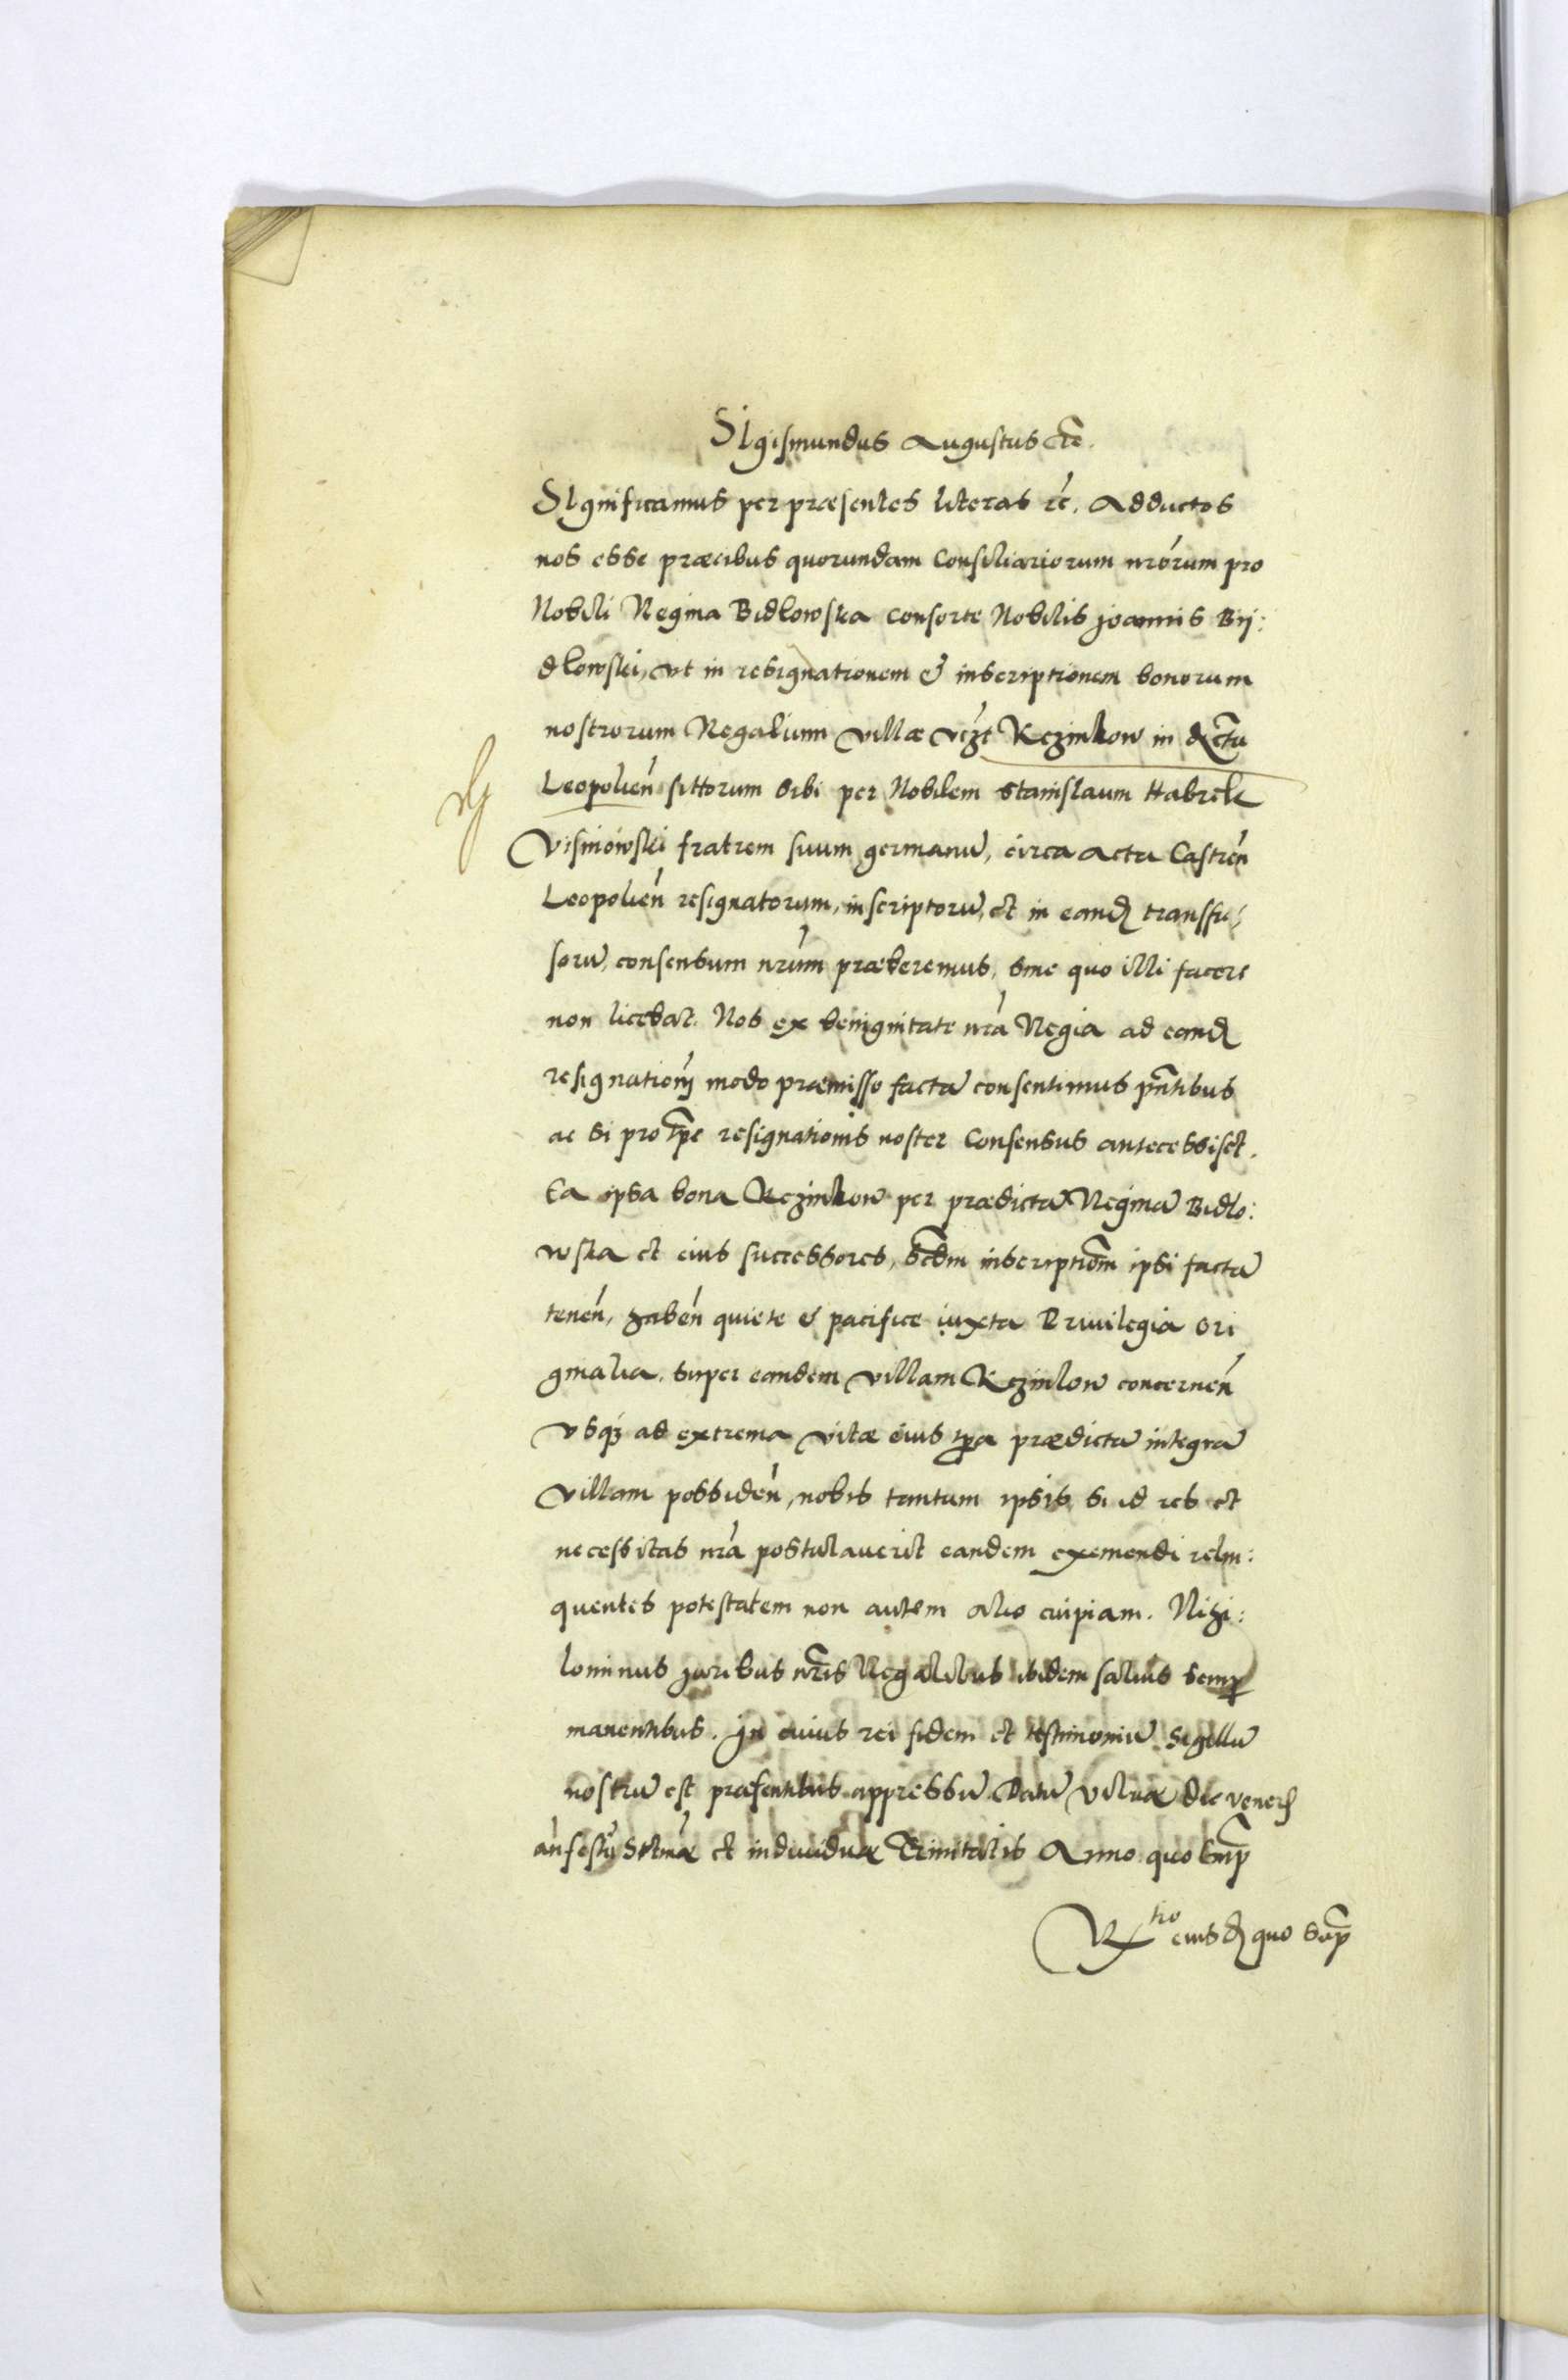 SIgismundus Augustus etc.
SIgnificamus per præsentes literas etc. Adductos
nos esse præcibus quorundam Consiliariorum nrorum pro
Nobili Regina Bidlowska Consorte Nobilis Joannis Bÿ:
dlowski, vt in resignationem & inscriptionem bonorum
nostrorum Regalium villæ vczt Rczinkow in dictu
Leopolien sittorum sibi per Nobilem Stanislaum Habrek
Visniowski fratrem suum germanū, circa acta Castren
Leopolien resignatorum, inscriptorū, et in eand transfu,
sorū, consensum nrum præberemus, sine quo illi facere
non licebat. Nos ex benignitate nra Regia ad eand
resignationem modo præmisso factā consentimus pntibus
ac si pro tpe resignationis noster Consensus antecessiset.
Ea ipsa bona Rczinkow per prædictā Reginā Bidlo:
wska et eius successores, scdm inscriptiom ipsi factā
tenen, haben quiete & pacifice iuxta Priuilegia ori
ginalia. super eandem villam Rczinkow concernen
vsq ad extrema vitæ eius tpa prædictā integrā
villam possiden, nobis tantum ipsis si id res et
necessitas nra postulauerit eandem exemendi relin:
quentes potestatem non autem alio cuipiam. Nihi:
lominus Juribus nris Regalibus ibidem saluis semp
manentibus. In cuius rei fidem et testimoniū Sigillū
nostrū est præsentibus appressū Datū Vilnæ die veneris
an festū Sctmæ et indiuiduæ Trinitatis Anno quo sup
R tio eiusd quo sup